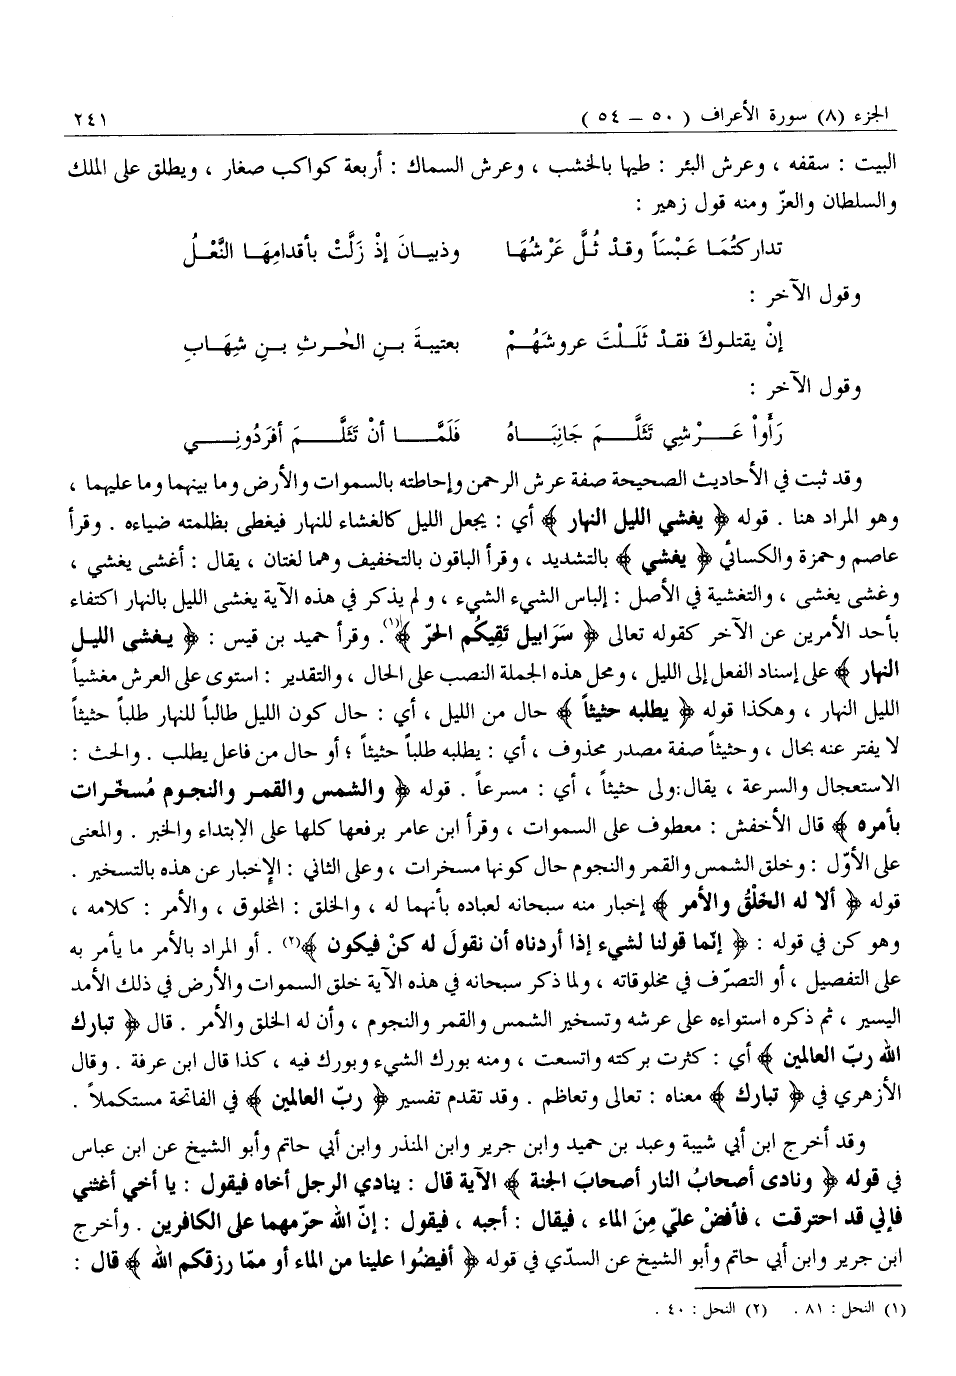 الجزء (٨) سورة الأعراف ( ٥٠ – ٥٤ ) ٢٤١
البيت : سقفه ، وعرش البئر : طيها بالخشب ، وعرش السماك : أربعة كواكب صغار ، ويطلق على الملك
والسلطان والعزّ ومنه قول زهير :
تداركتُمَا عَبْسَاً وقدْ ثُلَّ عَرْشُهَا وذبيانَ إذْ زَلَّتْ بأقدامِهَا النَّعْلُ
وقول الآخر :
إنْ يقتلوكَ فقدْ ثَلَلْتَ عروشَهُمْ بعتيبةَ بنِ الحٰرثِ بنِ شِهَابِ
وقول الآخر :
رَأَواْ عَرْشِي تَثَلَّمَ جَانِبَاهُ فَلَمَّا أنْ تَثَلَّمَ أفرَدُونِي
وقد ثبت في الأحاديث الصحيحة صفة عرش الرحمن وإحاطته بالسموات والأرض وما بينهما وما عليهما ،
وهو المراد هنا . قوله ﴿ يغشي الليل النهار ﴾ أي : يجعل الليل كالغشاء للنهار فيغطى بظلمته ضياءه . وقرأ
عاصم وحمزة والكسائي ﴿ يغشي ﴾ بالتشديد ، وقرأ الباقون بالتخفيف وهما لغتان ، يقال : أغشى يغشي ،
وغشى يغشى ، والتغشية في الأصل : إلباس الشيء الشيء ، ولم يذكر في هذه الآية يغشى الليل بالنهار اكتفاء
بأحد الأمرين عن الآخر كقوله تعالى ﴿ سَرَابيل تَقِيكُم الحَرّ ﴾(١). وقرأ حميد بن قيس : ﴿ يغشى الليل
النهار ﴾ على إسناد الفعل إلى الليل ، ومحل هذه الجملة النصب على الحال ، والتقدير : استوى على العرش مغشياً
الليل النهار ، وهكذا قوله ﴿ يطلبه حثيثاً ﴾ حال من الليل ، أي : حال كون الليل طالباً للنهار طلباً حثيثاً
لا يفتر عنه بحال ، وحثيثاً صفة مصدر محذوف ، أي : يطلبه طلباً حثيثاً ؛ أو حال من فاعل يطلب . والحث :
الاستعجال والسرعة ، يقال:ولى حثيثاً ، أي : مسرعاً . قوله ﴿ والشمس والقمر والنجوم مُسخّرات
بأمره ﴾ قال الأخفش : معطوف على السموات ، وقرأ ابن عامر برفعها كلها على الإبتداء والخبر . والمعنى
على الأوّل : وخلق الشمس والقمر والنجوم حال كونها مسخرات ، وعلى الثاني : الإخبار عن هذه بالتسخير .
قوله ﴿ ألا له الخَلْقُ والأمر ﴾ إخبار منه سبحانه لعباده بأنهما له ، والخلق : المخلوق ، والأمر : كلامه ،
وهو كن في قوله : ﴿ إنّما قولنا لشيء إذا أردناه أن نقولَ له كنْ فيكون ﴾(٢) . أو المراد بالأمر ما يأمر به
على التفصيل ، أو التصرّف في مخلوقاته ، ولما ذكر سبحانه في هذه الآية خلق السموات والأرض في ذلك الأمد
اليسير ، ثم ذكره استواءه على عرشه وتسخير الشمس والقمر والنجوم ، وأن له الخلق والأمر . قال ﴿ تبارك
الله ربّ العالمين ﴾ أي : كثرت بركته واتسعت ، ومنه بورك الشيء وبورك فيه ، كذا قال ابن عرفة . وقال
الأزهري في ﴿ تبارك ﴾ معناه : تعالى وتعاظم . وقد تقدم تفسير ﴿ ربّ العالمين ﴾ في الفاتحة مستكملاً .
وقد أخرج ابن أبي شيبة وعبد بن حميد وابن جرير وابن المنذر وابن أبي حاتم وأبو الشيخ عن ابن عباس
في قوله ﴿ ونادى أصحابُ النار أصحابَ الجنة ﴾ الآية قال : ينادي الرجل أخاه فيقول : يا أخي أغثني
فإني قد احترقت ، فأفضْ عليّ مِنَ الماء ، فيقال : أجبه ، فيقول : إنّ الله حرّمهما على الكافرين . وأخرج
ابن جرير وابن أبي حاتم وأبو الشيخ عن السدّي في قوله ﴿ أفيضُوا علينا من الماء أو ممّا رزقكم الله ﴾ قال :
(١) النحل : ٨١ . (٢) النحل : ٤٠ .